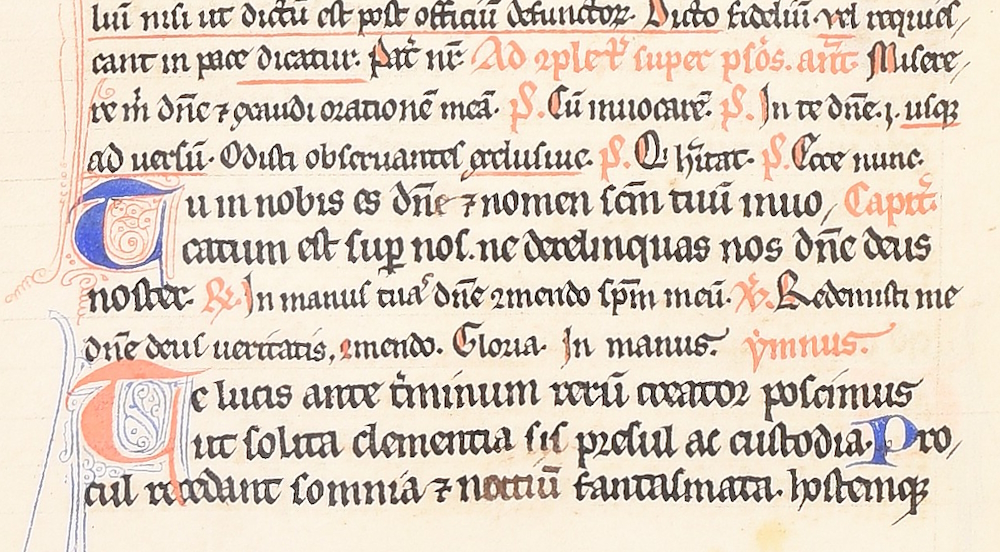 liū nisi ut dictū est post officiū defunctoꝝ. Dicto fideliū. vel requies/
cant in pace dicatur. Pat̄ nr̄. Ad ꝯpletͬ super psōs. ant̄. Misere/
re m̄ dn̄e ⁊ exaudi orationē meā. P̄. Cū inuocarē. P̄. In te dn̄e. j. usqꝫ
ad uersū. Odisti obseruantes exclusiue. P̄. Qi h̄itat. P̄. Ecce nunc.
Tu in nobis es dn̄e ⁊ nomen sc̄m tuū inuo/ Capit̄.
catum est suꝑ nos. ne derelinquas nos dn̄e deus
noster. ℟. In manus tuaˢ dn̄e ꝯmendo sp̄m meū. ℣. Redemisti me
dn̄e deus ueritatis, ꝯmendo. Gloria. In manus. ymnus.
Te lucis ante t̄minum rerū creator poscimus
ut solita clementia sis presul ac custodia. Pro/
cul recedant somnia ⁊ noctiū fantasmata. hostemqꝫ